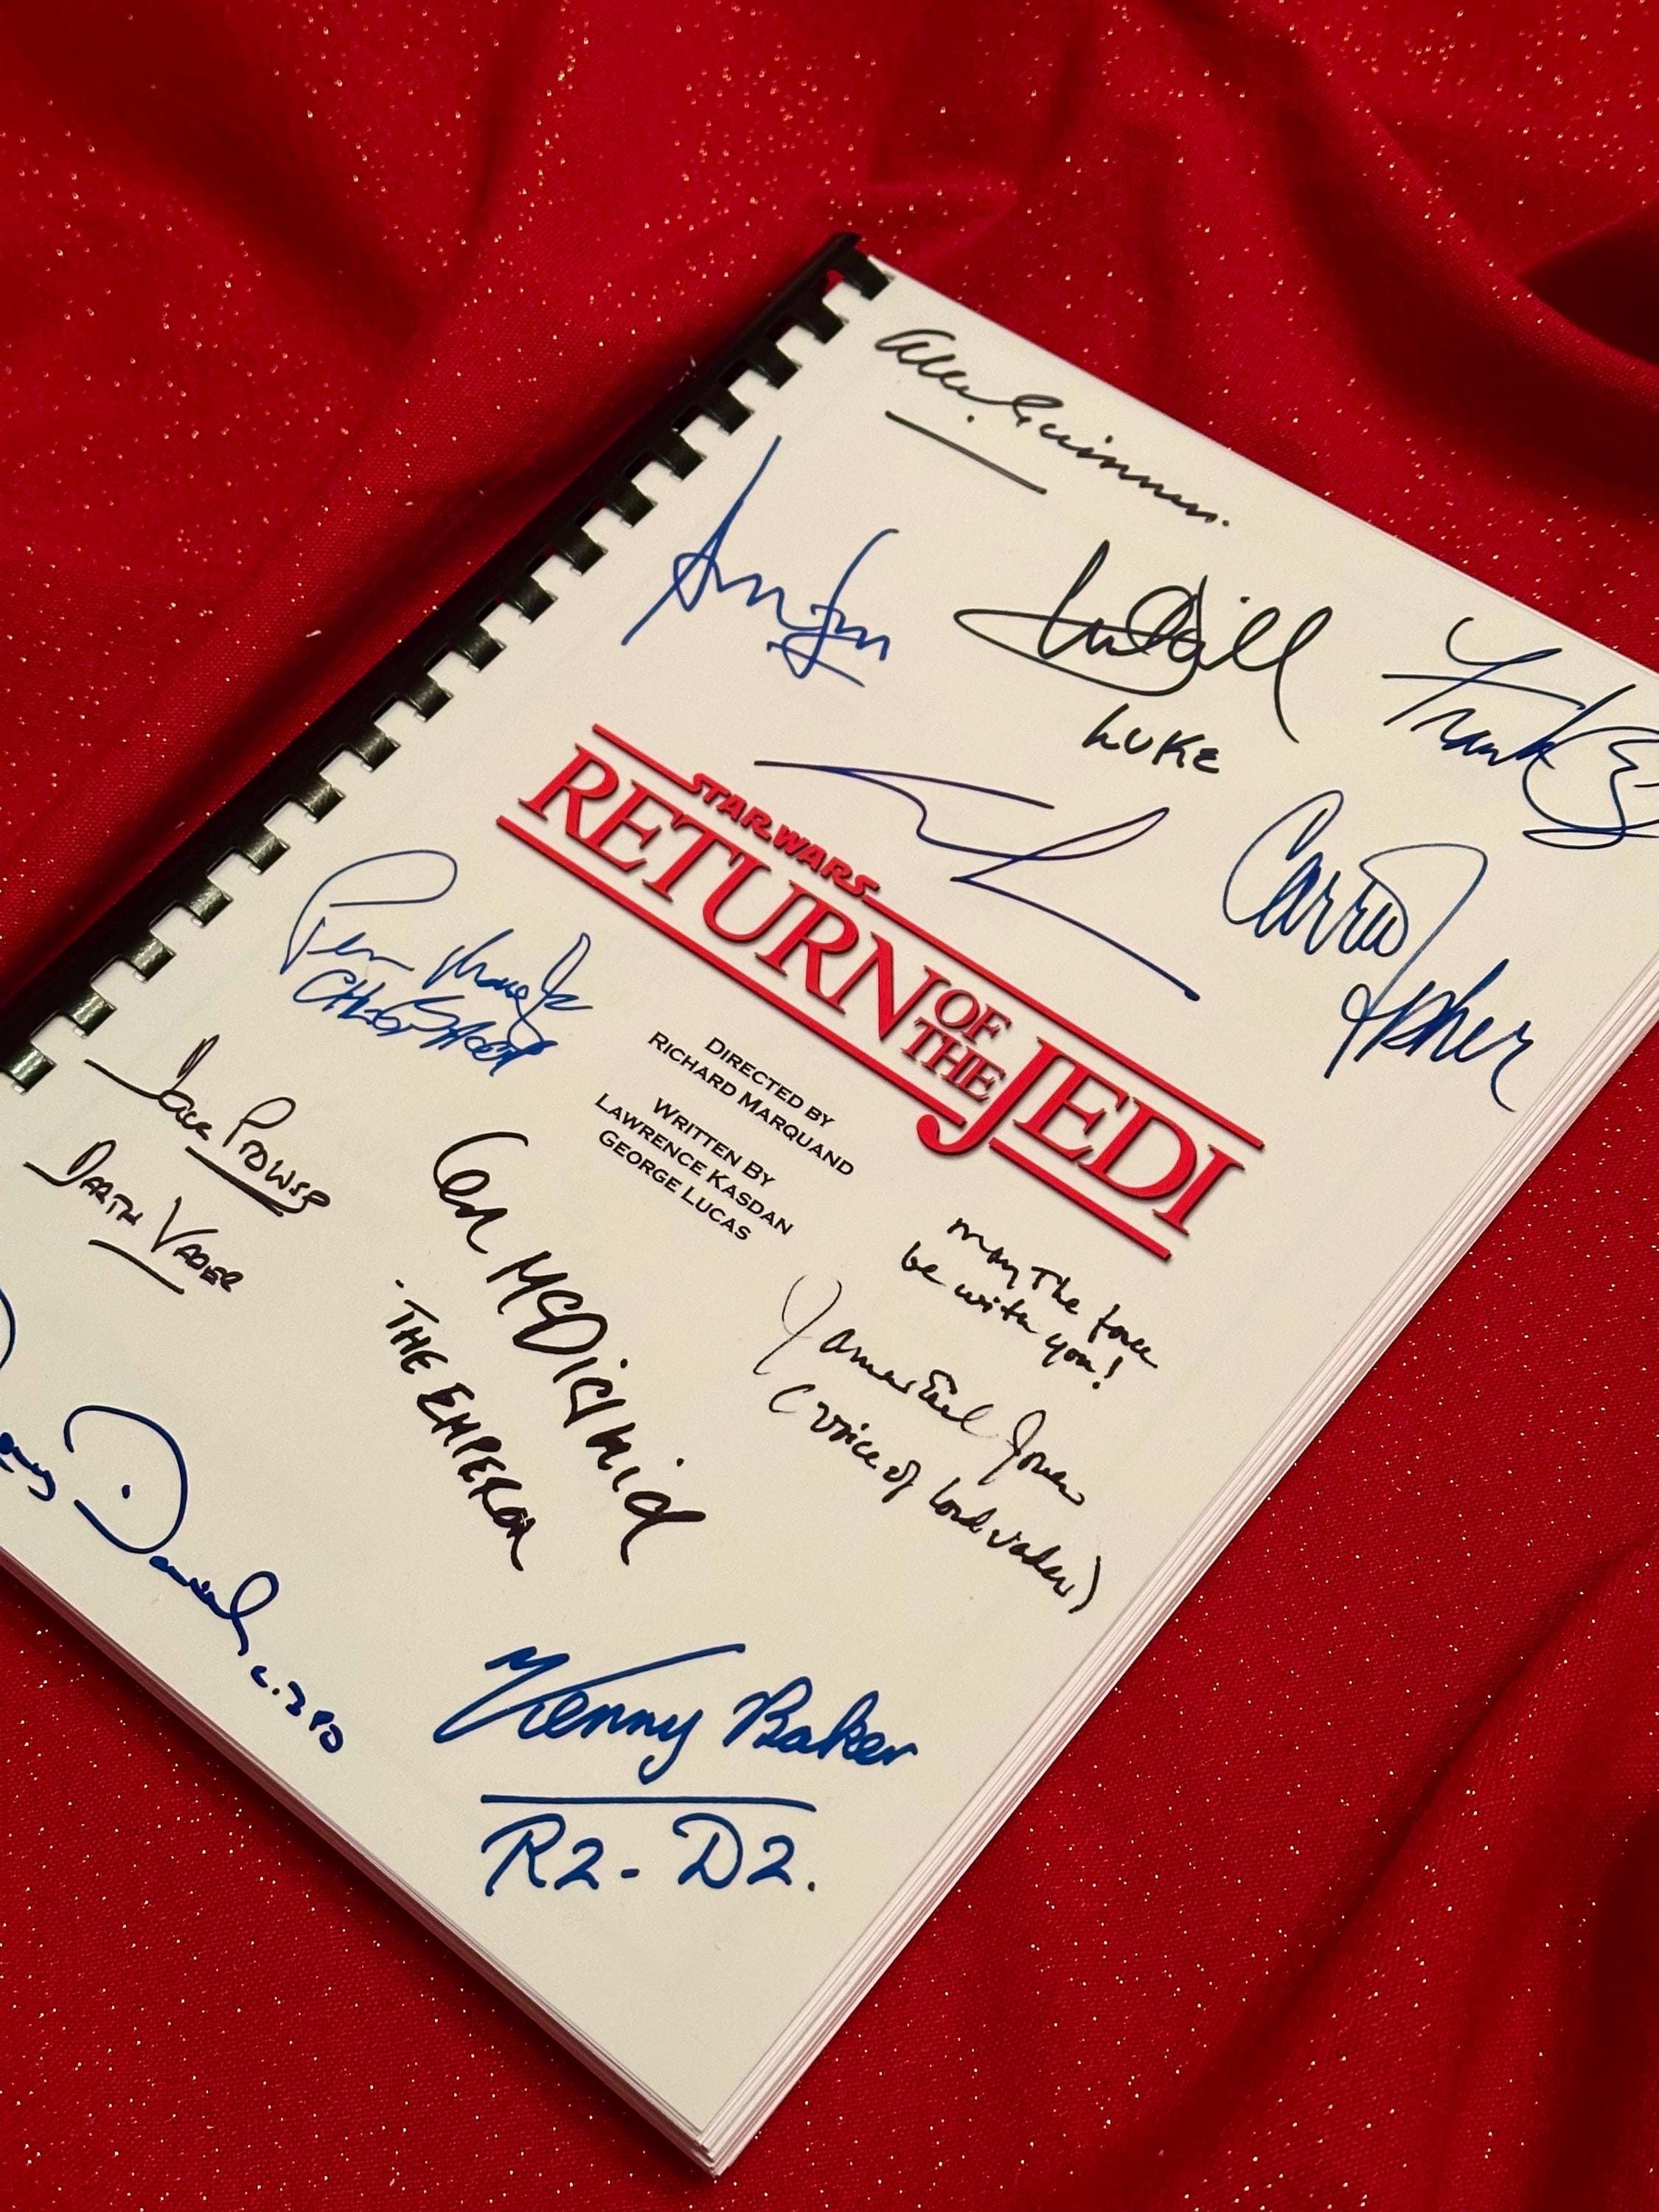 Alec Guinness.
LUKE
Frank Oz
STAR WARS
RETURN OF THE JEDI
Carrie Fisher
Peter Mayhew
CHEWBACCA
DIRECTED BY
RICHARD MARQUAND
WRITTEN BY
LAWRENCE KASDAN
GEORGE LUCAS
Dave Prowse
DARTH VADER
Ian McDiarmid
- THE EMPEROR
may the force
be with you!
James Earl Jones
(voice of lord vader)
Daniels
C-3PO
Kenny Baker
R2-D2.